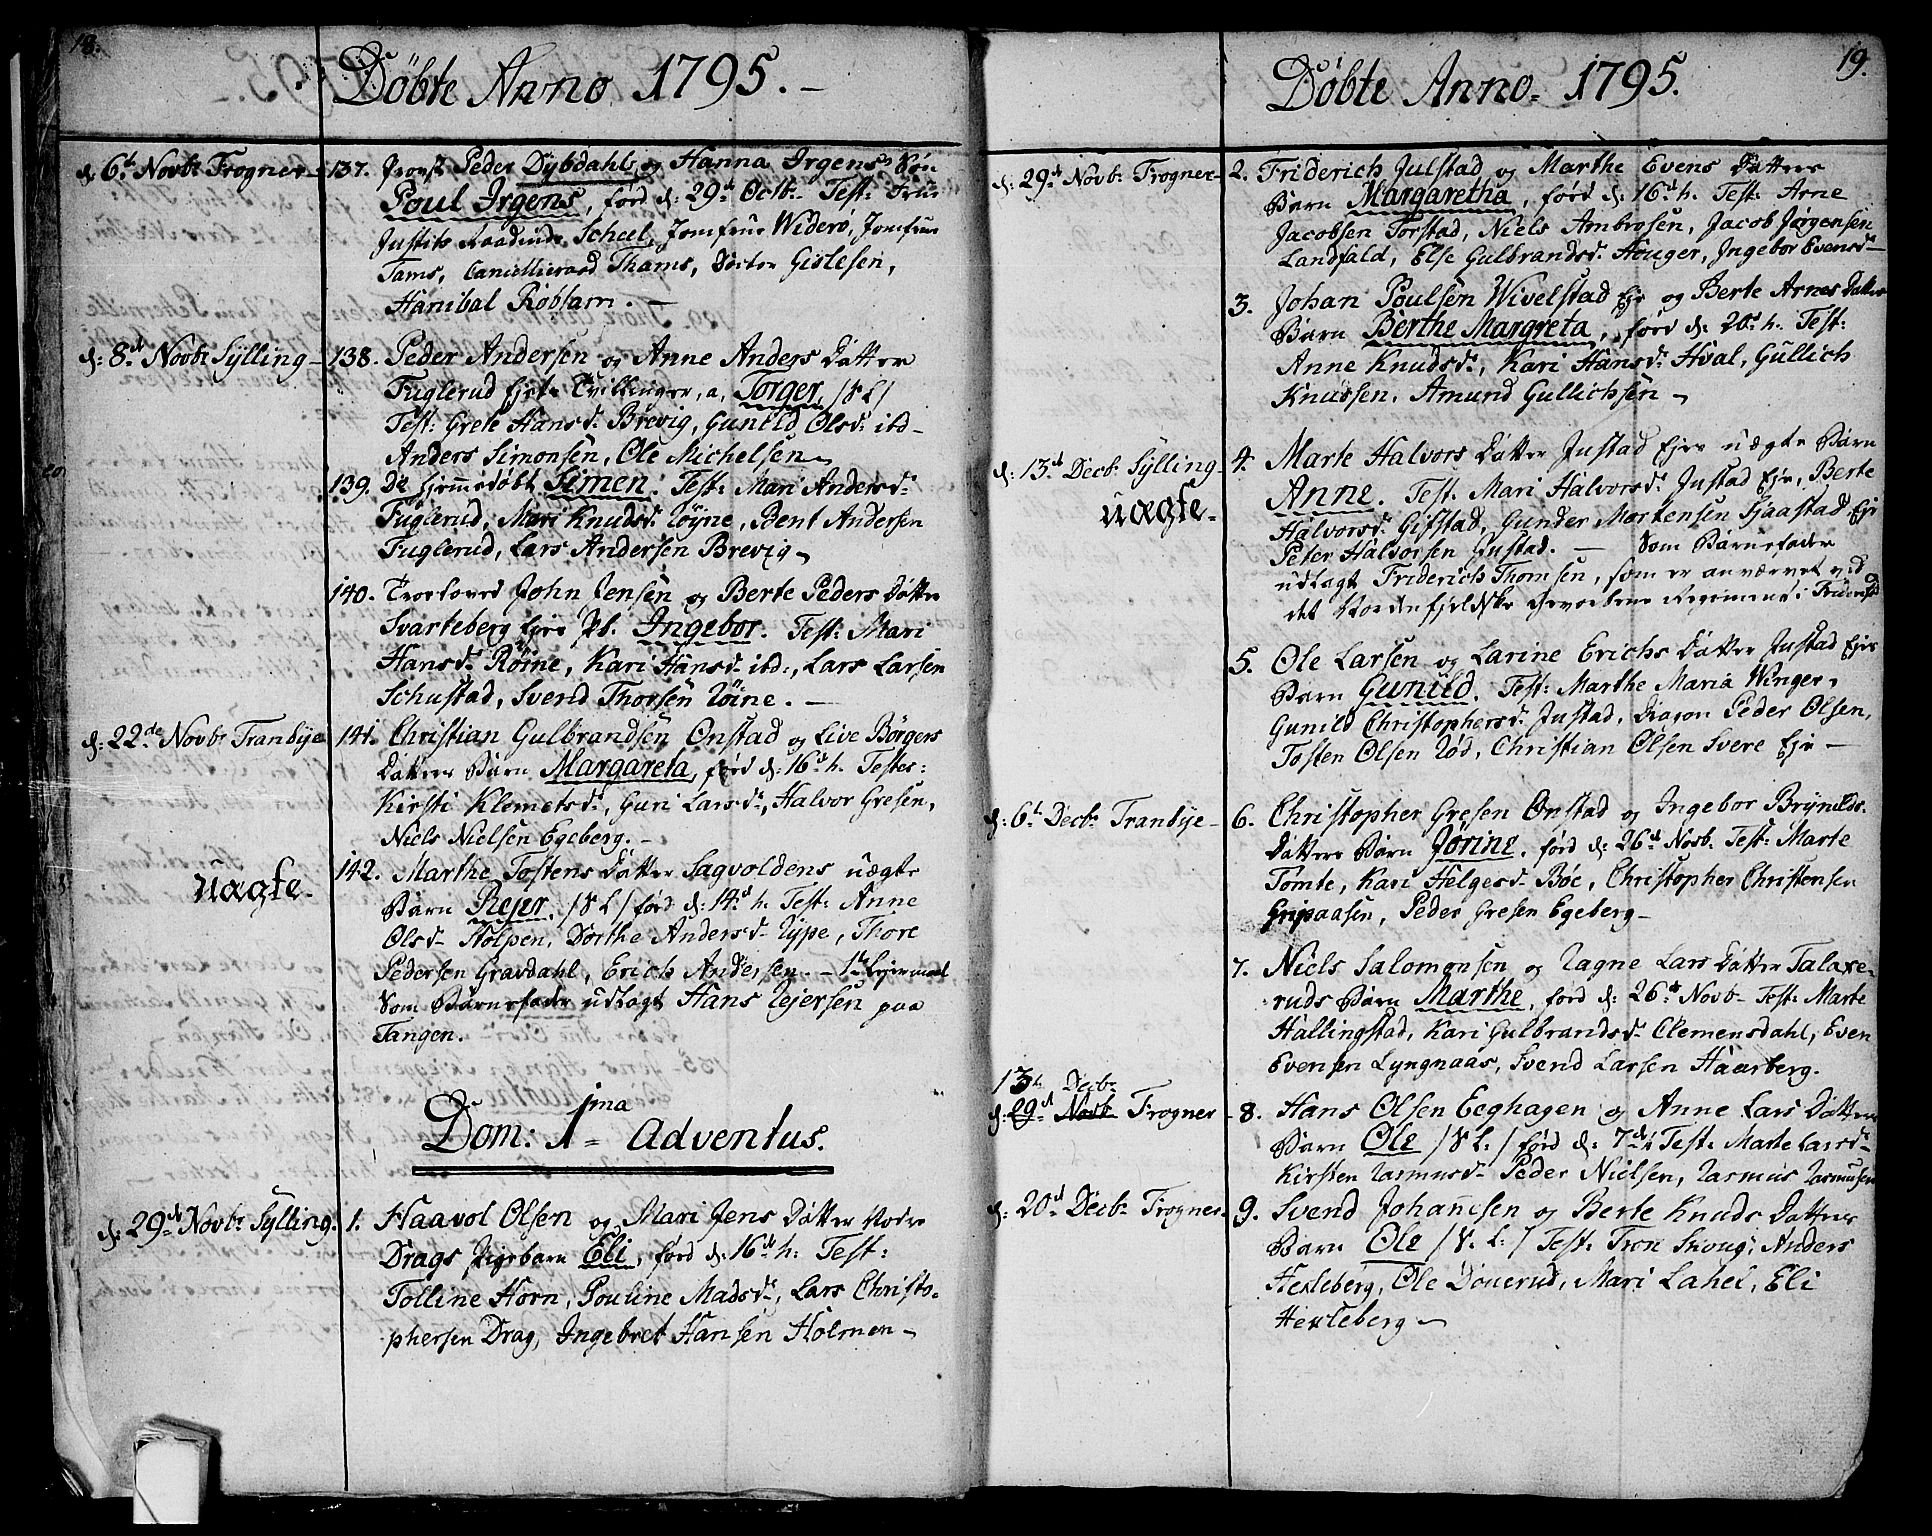 18.
Döbte Anno 1795.
d. 6te Novbr Trogner 137. Provst Peder Dybdahls og Hanna Irgens's Sön
Poul Irgens, förd d: 29de Octb. Test: Frue
Justits Raadinde Scheel, Jomfrue Widerö, Jomfrue
Tams, Cancelliraad Thams, Doctor Gislesen,
Hanibal Röbsam.
d: 8de Novbr Sylling 138. Peder Andersen og Anne Anders Datter
Fuglerud Ejets Tvillinger, a, Torger /S L/
Test: Grete Hansd. Brevig, Gunild Olsd. ibd
Anders Simonsen, Ole Michelsen
139. De hjemmedöbt Simen. Test: Mari Andersd.
Fuglerud, Mari Knudsd. Röyne, Bent Andersen
Fuglerud, Lars Andersen Brevig
140. Troloved John Jensen og Berte Peders Datter
Svarteberg Ejes Pb. Ingebor. Test: Mari
Hansd. Röine, Kari Hansd. ibd:, Lars Larsen
Schustad, Svend Thorsen Röine.
d: 22de Novbr Tranbye 141. Christian Gulbrandsen Onstad og Live Börgers
Datters Barn Margareta, förd d: 16de h. Testes:
Kirsti Klemetsd., Guri Larsd., Halvor Gresen,
Niels Nielsen Egeberg.
uægte. 142. Marthe Tostens Datter Sagvoldens uægte
Barn Rejer. /S L/ förd d: 14de h. Test: Anne
Olsd. Holpen, Dorthe Andersd. Rype, Thore
Pedersen Gravdahl, Erich Andersen. 1te Lejermaal
Som Barnefader udlagt Hans Rejersen paa
Tangen.
Dom: 1ma Adventus.
d: 29de Novbr Sylling. 1. Haavol Olsen og Mari Jens Datter Nodre
Drags Pigebarn Eli, förd d: 16de h: Test:
Tolline Horn, Pouline Madsd., Lars Christo-
phersen Drag, Ingebret Hansen Holmen
19.
Döbte Anno 1795.
d: 29de Novbr Trogner 2. Friderich Julstad og Marthe Evens Datters
Barn Margaretha, förd d: 16de h. Test: Arne
Jacobsen Torstad, Niels Ambrosen, Jacob Jörgensen
Landfald, Else Gulbrandsd. Houger, Ingebor Evensd
3. Johan Poulsen Wivelstad Eje og Berte Arnes Datter
Barn Berthe Margreta, förd d: 20de h. Test:
Anne Knudsd., Kari Hansd. Hval, Gullich
Knudsen, Amund Gullichsen
d: 13de Decbr Sylling 4. Marte Halvors Datter Justad Ejes uægte Barn
uægte. Anne. Test. Mari Halvorsd. Justad Eje, Berte
Halvorsd. Gifstad, Gunder Mortensen Sjaastad Eje
Peter Halvorsen Justad. Som Barnefader
udlagt Friderich Thomsen, som er anværvet ved
det Nordenfjeldske Gevorbene Regiment i
5. Ole Larsen og Larine Erichs Datter Justad Ejes
Barn Gunild. Test: Marthe Maria Winger,
Gunild Christophersd. Justad, Diacon Peder Olsen,
Tosten Olsen Röd, Christian Olsen Svere Eje
d: 6te Decbr Tranbye 6. Christopher Gresen Onstad og Ingebor Brynilds-
Datters Barn Jörine. förd d: 26de Novb. Test: Marte
Tömte, Kari Helgesd. Böe, Christopher Christensen
Gripaasen, Peder Gresen Egeberg
7. Niels Salomonsen og Ragne Lars Datter Talaxe-
ruds Barn Marthe, förd d: 26de Novb. Test: Marte
Hallingstad, Kari Gulbrandsd. Clemensdahl, Even
Evensen Lyngnaas, Svend Larsen Haarberg.
13de Decbr
d: 29de Novb Trogner 8. Hans Olsen Eeghagen og Anne Lars Datters
Barn Ole /S L./ förd d: 7de Test: Marte Larsd.
Kirsten Rasmusd. Peder Nielsen, Rasmus Rasmusen
d: 20de Decbr Trogner 9. Svend Johannesen og Berte Knuds Datters
Barn Ole /S. L:/ Test: Tron Skoug, Anders
Hexleberg, Ole Döuerud, Mari Lahel, Eli
Hexleberg